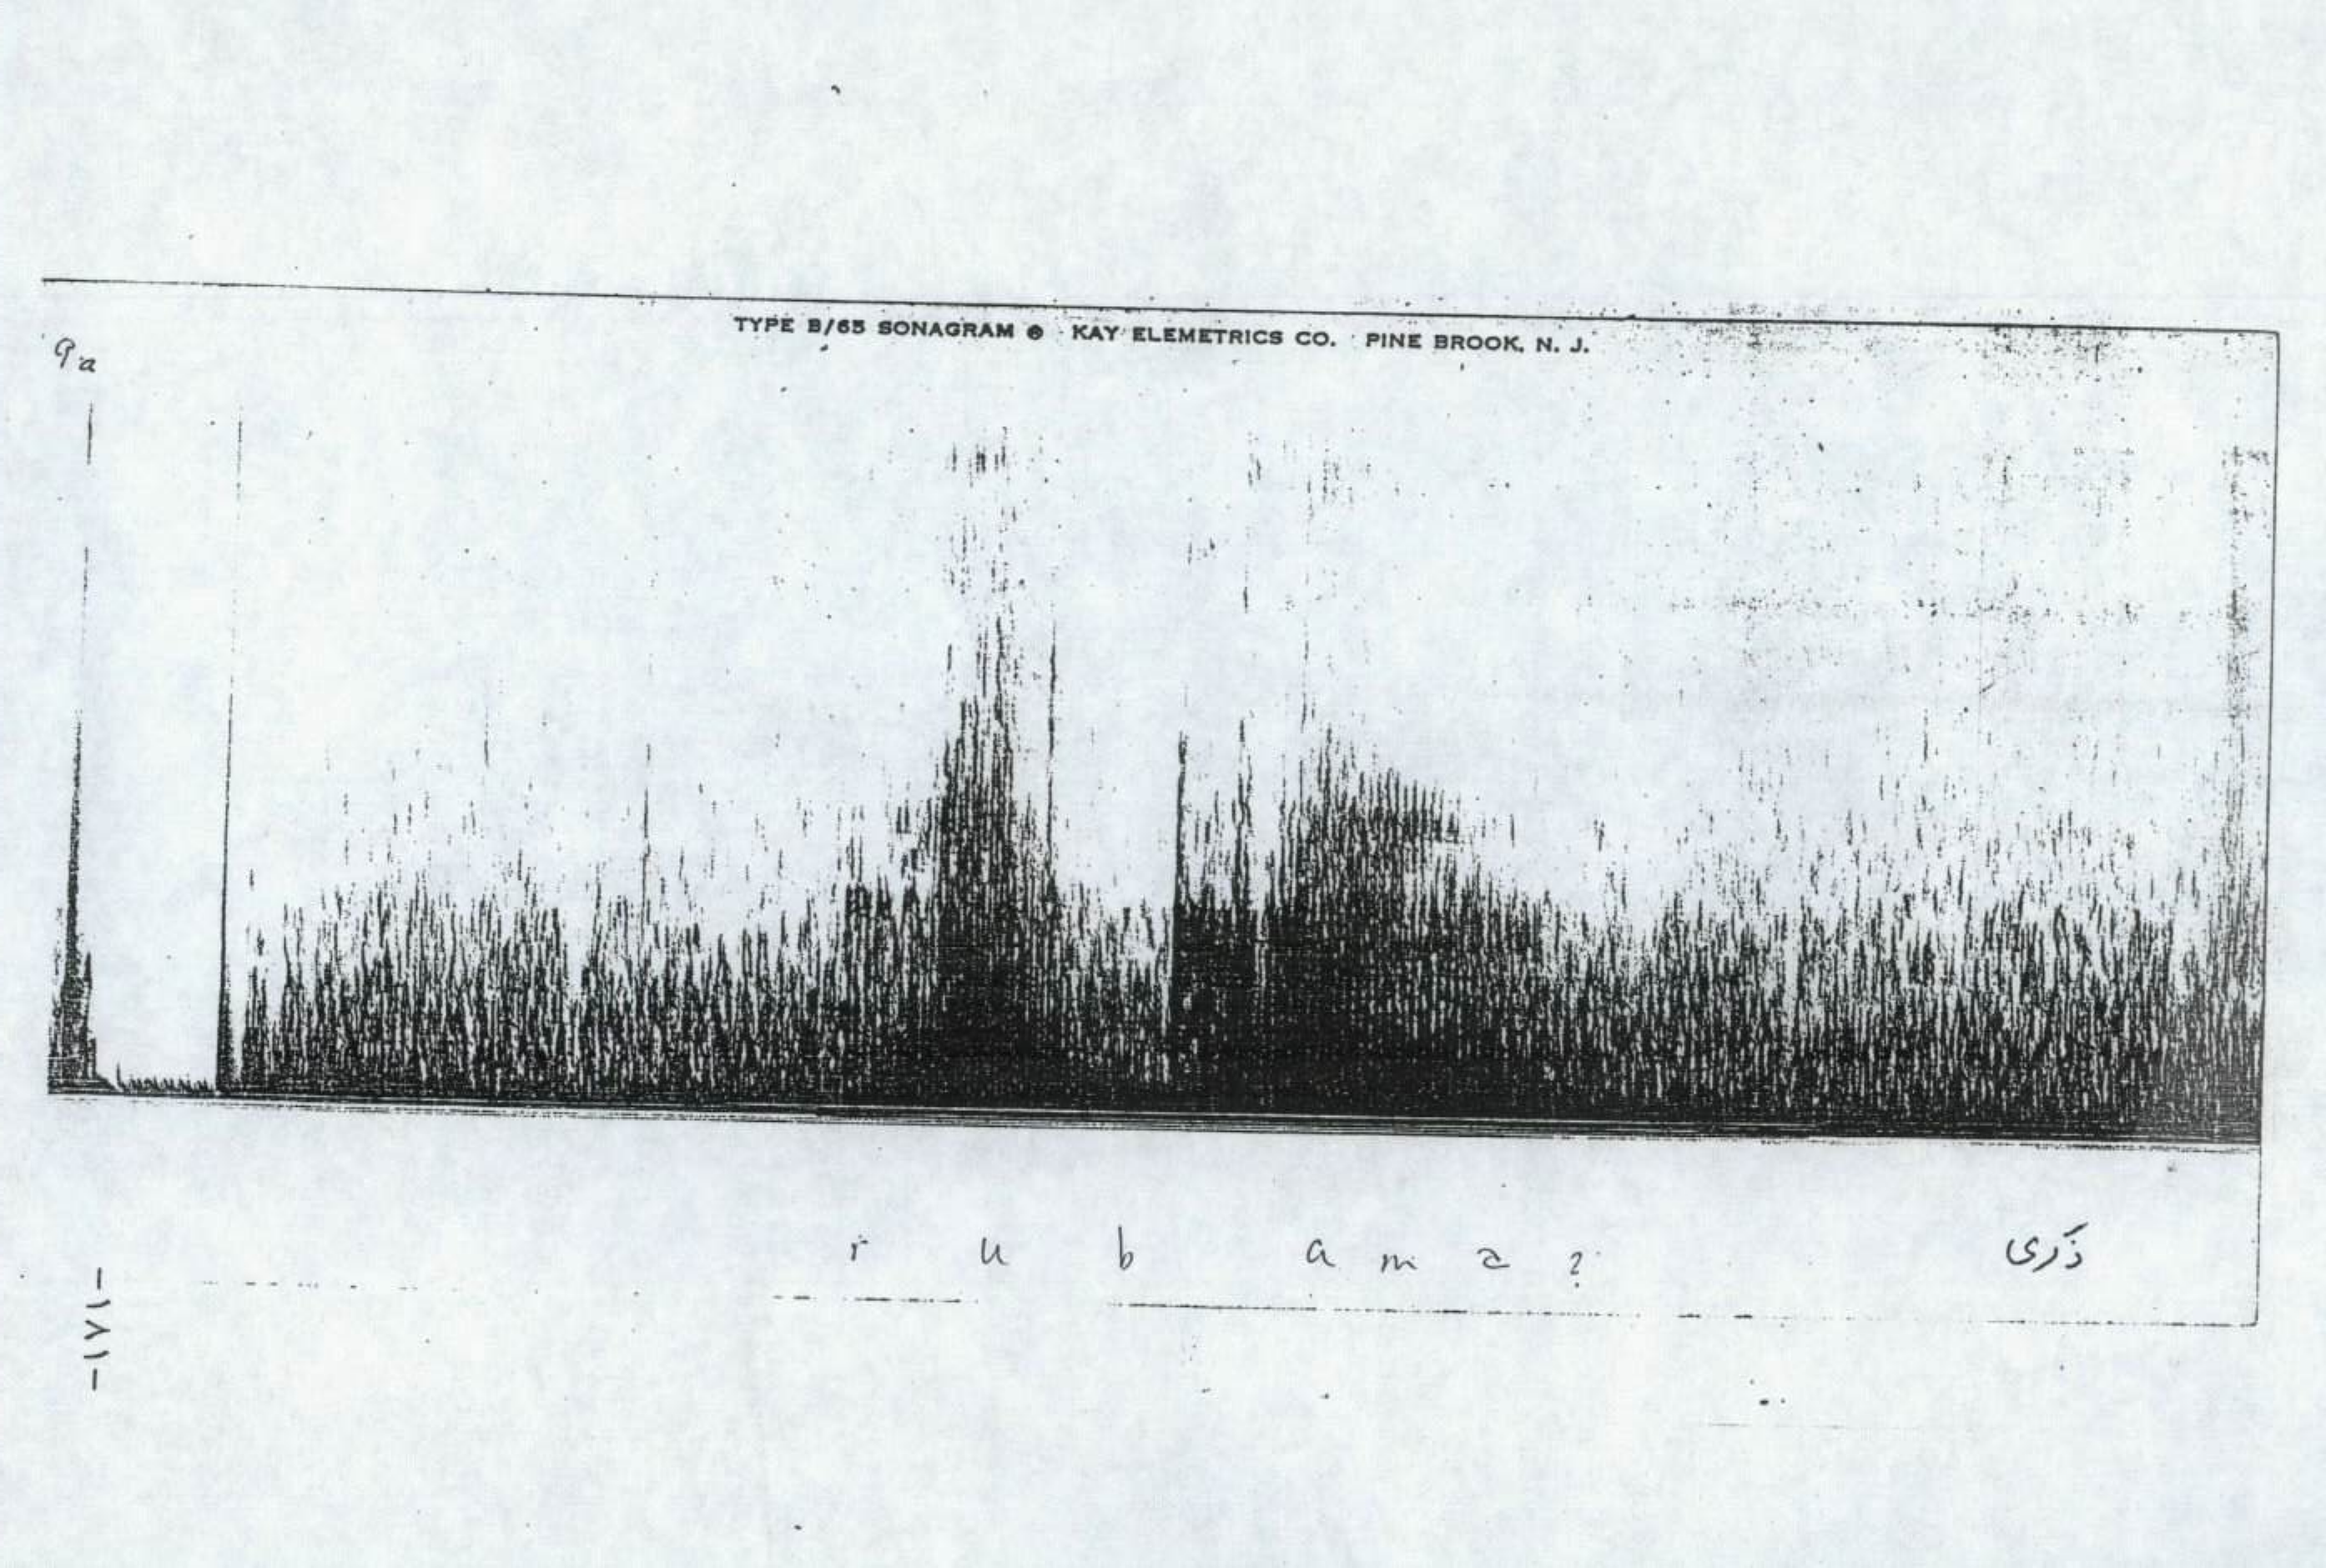 TYPE B/65 SONAGRAM ® KAY ELEMETRICS CO. PINE BROOK, N. J.
9a
r u b a m a ?
ذكرى
-١٧١-